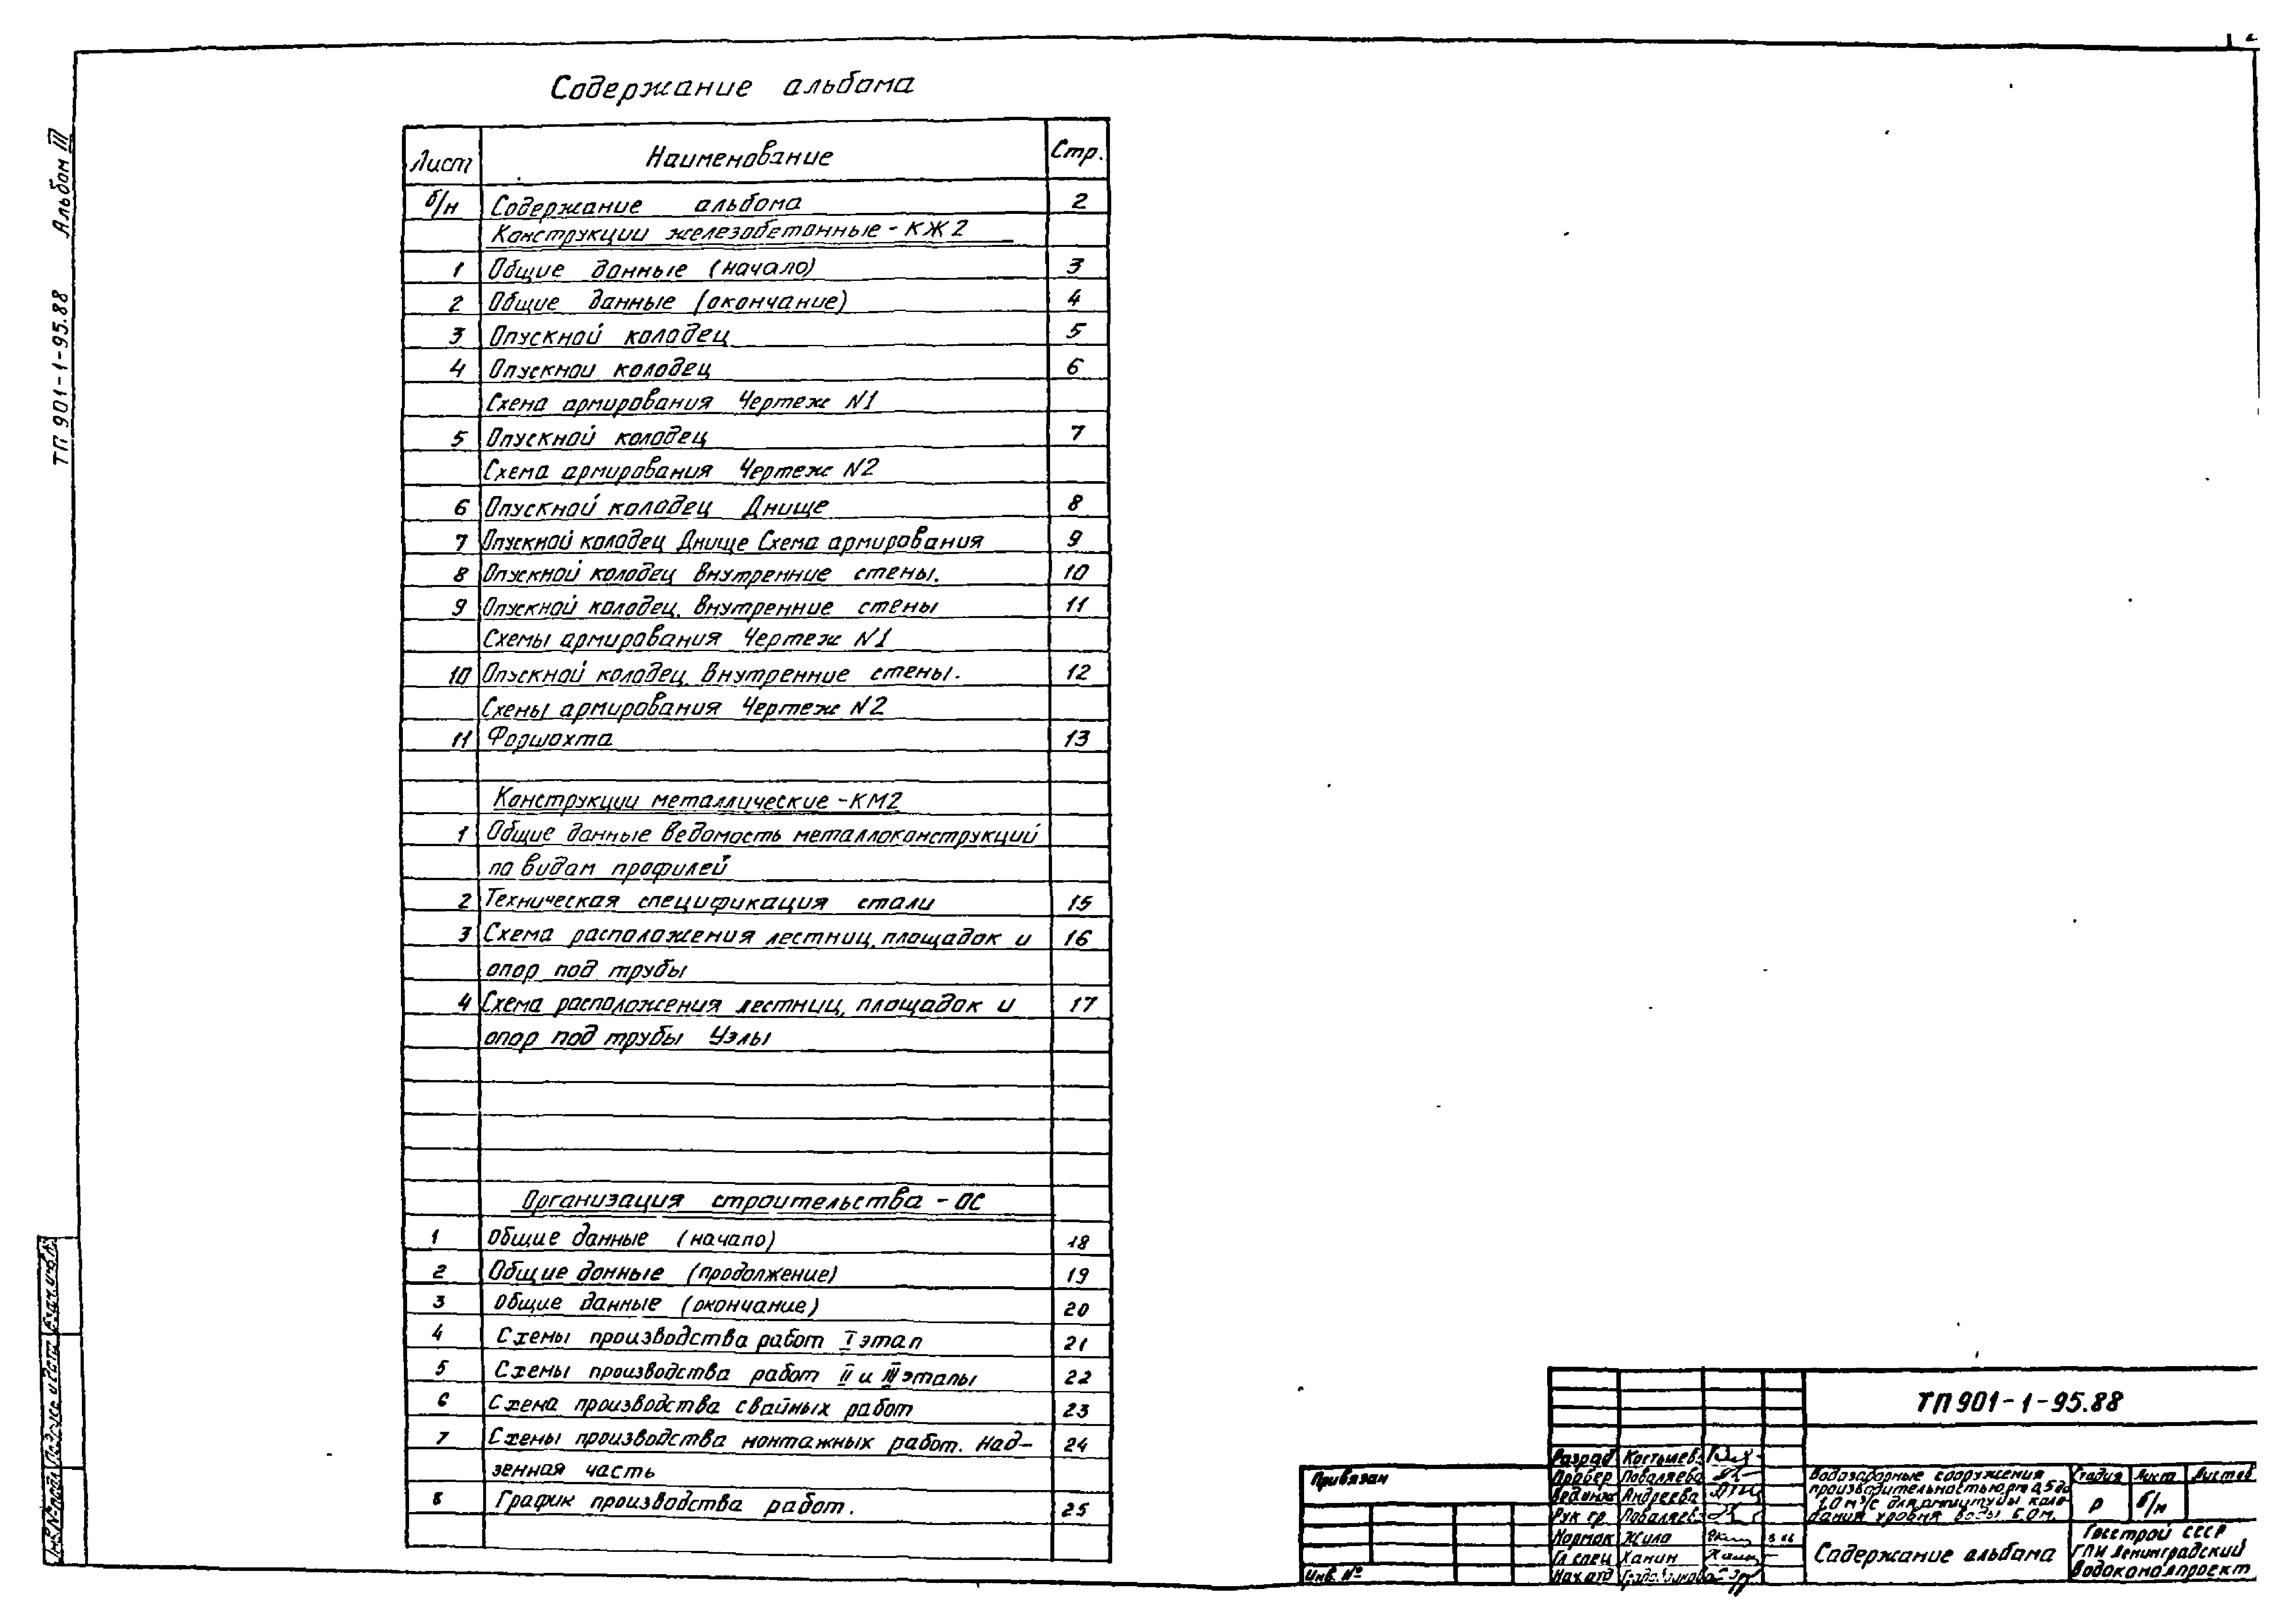 2
Альбом III
ТП 901-1-95.88
Содержание альбома
Лист Наименование Стр.
б/н Содержание альбома 2
Конструкции железобетонные - КЖ2
1 Общие данные (начало) 3
2 Общие данные (окончание) 4
3 Опускной колодец 5
4 Опускной колодец 6
Схема армирования Чертеж N1
5 Опускной колодец 7
Схема армирования Чертеж N2
6 Опускной колодец Днище 8
7 Опускной колодец Днище Схема армирования 9
8 Опускной колодец Внутренние стены. 10
9 Опускной колодец. Внутренние стены 11
Схемы армирования Чертеж N1
10 Опускной колодец. Внутренние стены. 12
Схемы армирования Чертеж N2
11 Форшахта 13
Конструкции металлические - КМ2
1 Общие данные Ведомость металлоконструкций
по видам профилей
2 Техническая спецификация стали 15
3 Схема расположения лестниц, площадок и 16
опор под трубы
4 Схема расположения лестниц, площадок и 17
опор под трубы Узлы
Организация строительства - ОС
1 Общие данные (начало) 18
2 Общие данные (продолжение) 19
3 Общие данные (окончание) 20
4 Схемы производства работ I этап 21
5 Схемы производства работ II и III этапы 22
6 Схема производства свайных работ 23
7 Схемы производства монтажных работ. Над- 24
земная часть
8 График производства работ. 25
ТП 901-1-95.88
Привязан
Инв. №
Разраб Костылев
Провер Поваляева
Вед.инж Андреева
Рук гр. Поваляев
Нормок Жила
Гл спец Ханин
Нач.отд
Водозаборные сооружения
производительностью от 0,5 до
1,0 м³/с для амплитуды коле-
бания уровня воды 6,0 м.
Стадия Лист Листов
Р б/н
Содержание альбома
Госстрой СССР
ГПИ Ленинградский
Водоканалпроект
Инв.№ подл. Подпись и дата Взам.инв.№